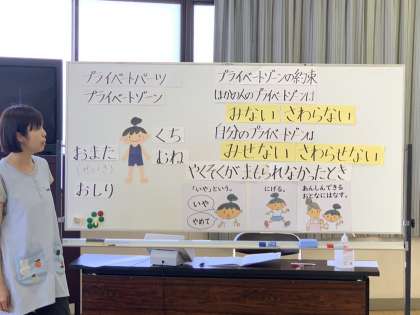 プライベートパーツ
プライベートゾーン
くち
むね
およまた
おしり
プライベートゾーンの約束
ほかの人のプライベートゾーンは
みない さわらない
自分のプライベートゾーンは
みせない さわらせない
やくそくがまもられなかったとき
「いや」という。
いや
やめて
にげる。
あんしんできる
おとなにはなす。